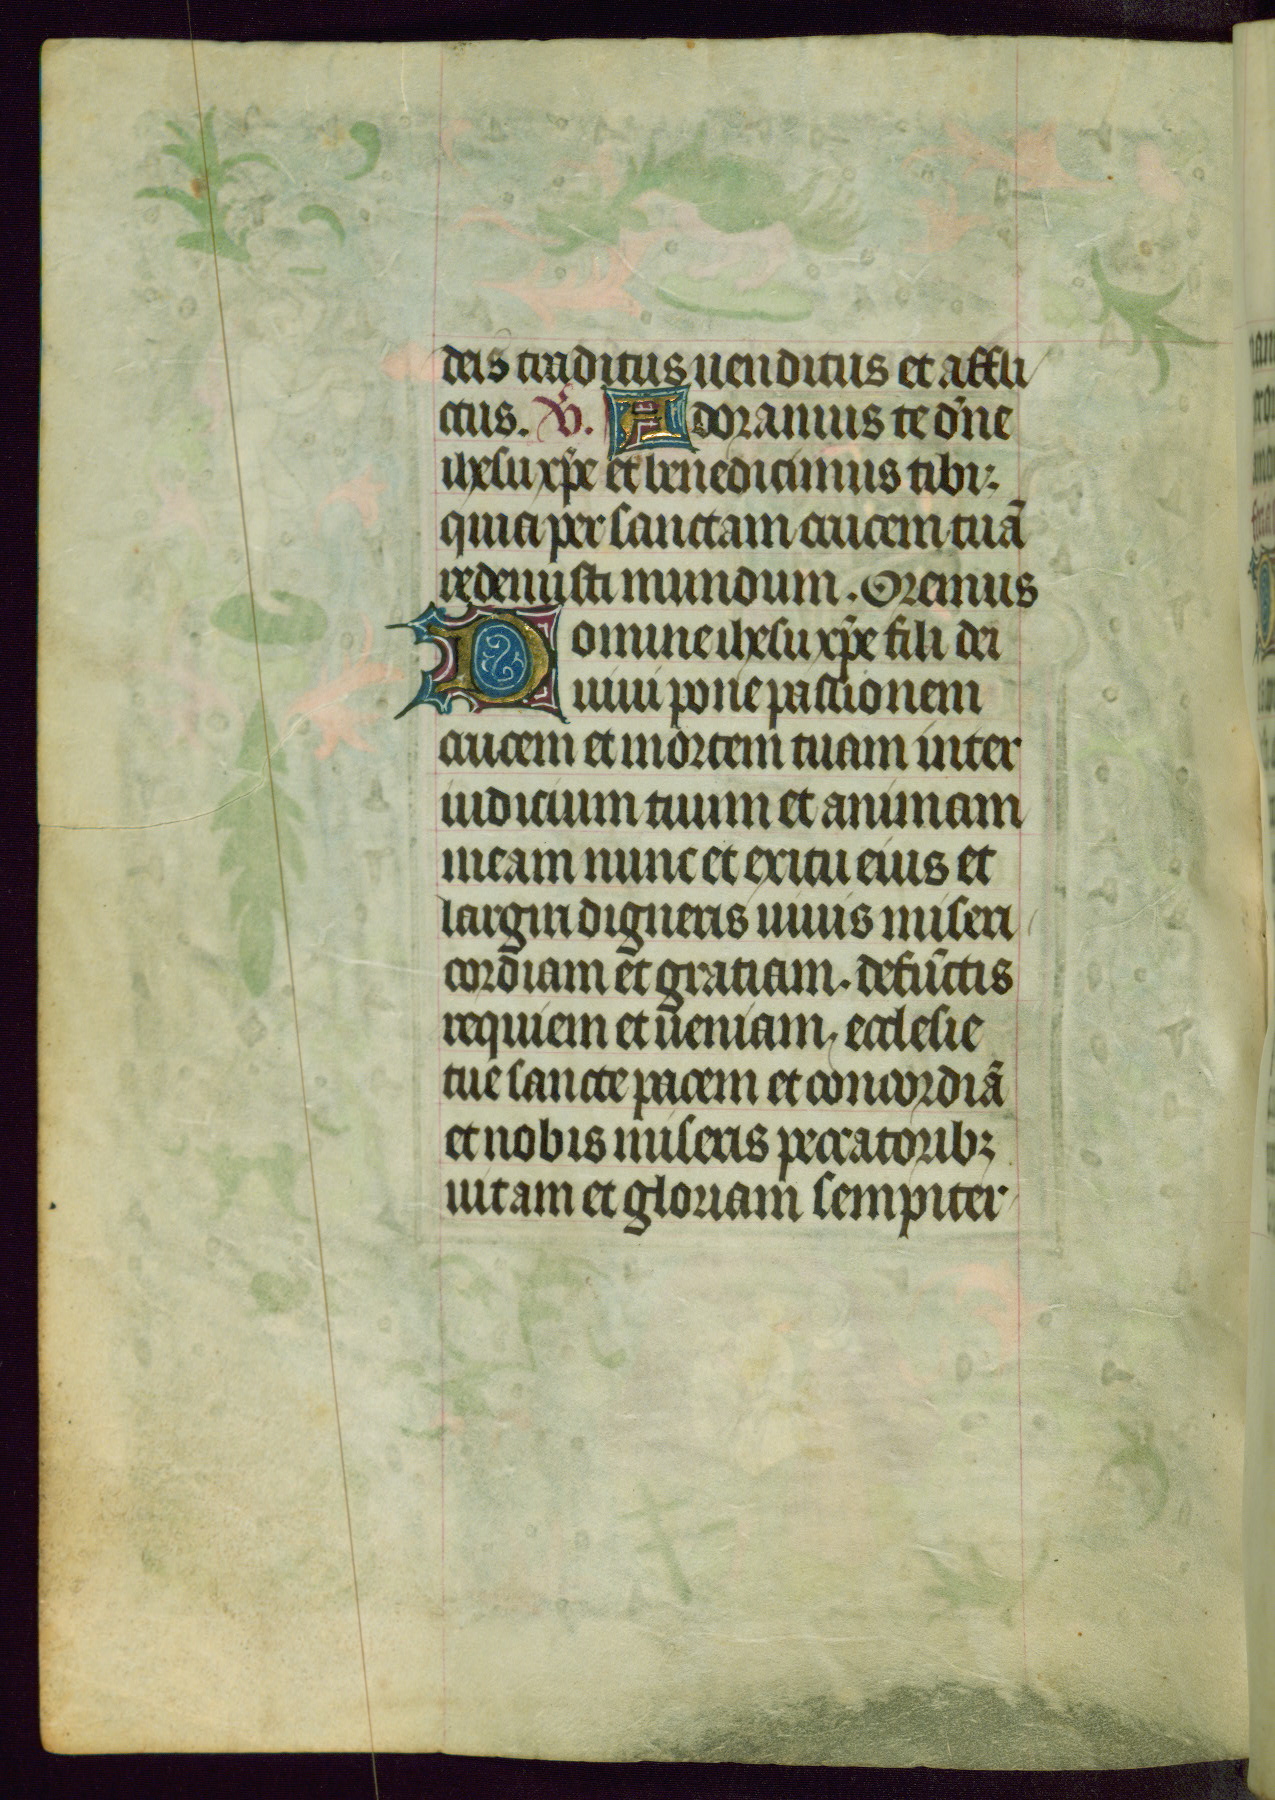 deis traditus uenditus et affli
ctus. V. Adoramus te dn̄e
ihesu xp̄e et benedicimus tibi:
quia per sanctam crucem tuā
redemisti mundum. Oremus
Domine ihesu xp̄e fili dei
uiui pone passionem
crucem et mortem tuam inter
iudicium tuum et animam
meam nunc et exitu eius et
largiri digneris uiuis miseri
cordiam et gratiam. defūctis
requiem et ueniam, ecclesie
tue sancte pacem et concordiā
et nobis miseris peccatorib;
uitam et gloriam sempiter